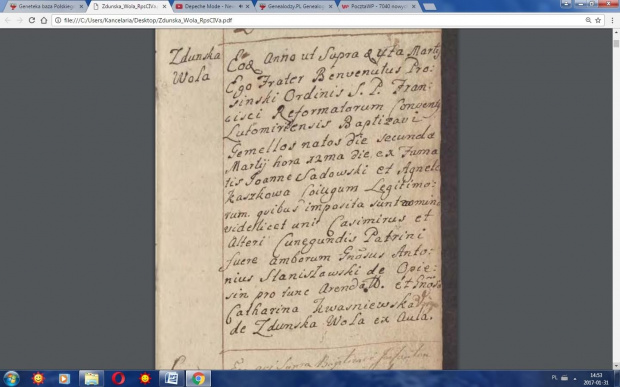 Geneteka baza Polskiego
Zdunska_Wola_RpsCIVa.
Depeche Mode - Ne
Genealodzy.PL Geneal
PocztaWP - 7040 nowy
file:///C:/Users/Kancelaria/Desktop/Zdunska_Wola_RpsCIVa.pdf
Zdunska
Wola
Eod Anno ut Supra d 4ta Martij
Ego Frater Benvenutus Pro-
sinski Ordinis S. P. Fran-
cisci Reformatorum Convent
Lutomirensis Baptizavi
Gemellos natos die secunda
Martij hora 12ma die ex Fama
tis Joanne Sadowski et Agnete
Kaszkowa Coiugum Legitimo-
rum, quibus imposita sunt nomina
videlicet uni Casimirus et
Alteri Cunegundis Patrini
fuere amborum Gnosus Anto-
nius Stanisławski de Opie-
sin pro tunc Arenda et Gnosa
Catharina Kwasniewska
de Zdunska Wola ex Aula.
PL
14:53
2017-01-31